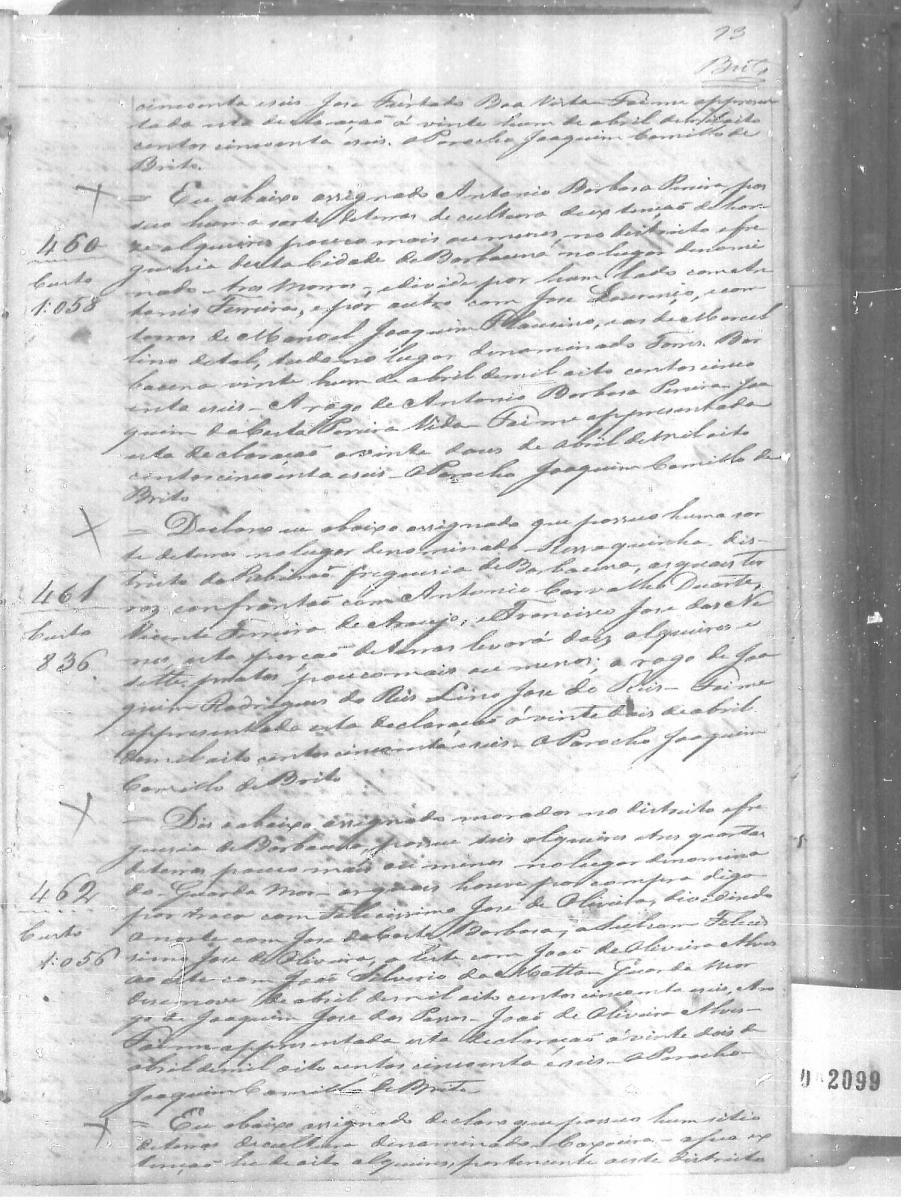 23
Brito
cincoenta e seis José Furtado Boa Vista Foi me appresen
tada esta declaração á vinte hum de abril de mil oito
centos cincoenta e seis. O Parocho Joaquim Camillo de
Brito.
= Eu abaixo assignado Antonio Barbosa Pereira, pos
suo huma sorte de terras de cultura de extenção de
alqueires pouco mais ou menos, no districto e fre
460
guesia desta Cidade de Barbacena no lugar denomi
Custo
nado - tres Morros, e divide por hum lado com An
1:058
tonio Ferreira, e por outro com José Lourenço, e com
terras de Manoel Joaquim e as de Marcel
lino de tal, tudo no lugar denominado Torres. Bar
bacena vinte hum de abril de mil oito centos cinco
enta e seis - A rogo de Antonio Barbosa Pereira - Joa
quim da Costa Pereira Foi me appresentada
esta declaração a vinte dous de abril de mil oito
centos cincoenta e seis - O Parocho Joaquim Camillo de
Brito
= Declaro eu abaixo assignado que possuo huma sor
te de terras no lugar denominado - Ressaquinha dis-
tricto do Ribeirão, freguesia de Barbacena, as quais ter
461
ras confrontão com Antonio Carvalho Duarte,
Custo
Vicente Ferreira de Araujo, e Francisco José das Ne
836
ves, esta porção de terras levará dois alqueires e
sette pratos, pouco mais ou menos; a rogo de Joa
quim Rodrigues do Reis Lino José do Reis - Foi me
appresentada esta declaração á vinte dois de abril
de mil oito centos cincoenta e seis - O Parocho Joaquim
Camillo de Brito
= Diz o abaixo assignado morador no districto e fre
guesia de Barbacena, possue seis alqueires e tres quartas
de terras pouco mais ou menos no lugar denomina
462
do - Guarda Mor - as quais houve por compra digo
por troca com Felicissimo José de Oliveira, dividindo
Custo
ao norte com José da Costa Barbosa, ao sul com Felicis
1:056
simo José de Oliveira, a Leste com João de Oliveira Alves
ao este com João Silverio da Matta - Guarda Mor
desenove de abril de mil oito centos cincoenta e seis, Aro
go de Joaquim José dos Passos - João de Oliveira Alves -
Foi me appresentada esta declaração á vinte dois de
abril de mil oito centos cincoenta e seis - O Parocho -
Joaquim Camillo de Brito
= Eu abaixo assignado declaro que possuo hum sitio
de terras de cultura denominado - Caxoeira - a sua ex
tenção he de oito alqueires, pertencente a este Districto
2099